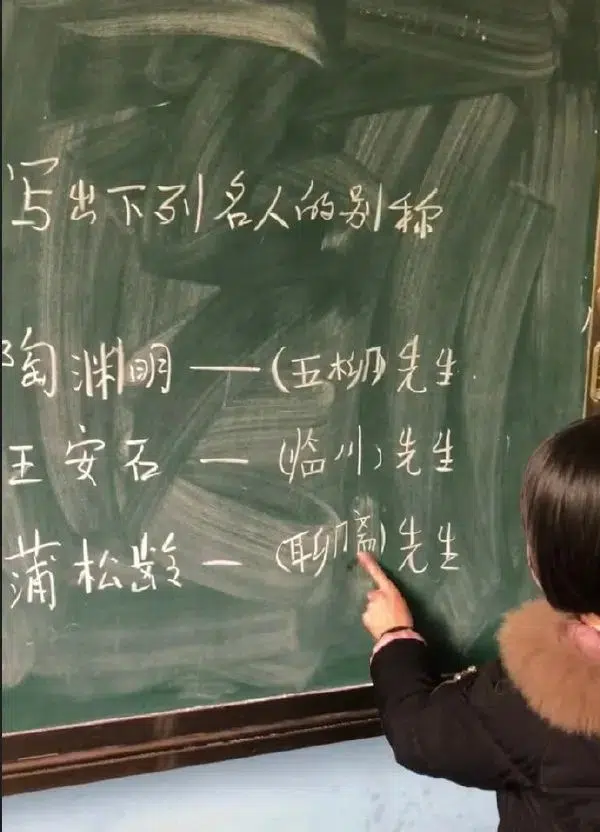 写出下列名人的别称
陶渊明——(五柳)先生.
王安石—(临川)先生
蒲松龄—(聊斋)先生